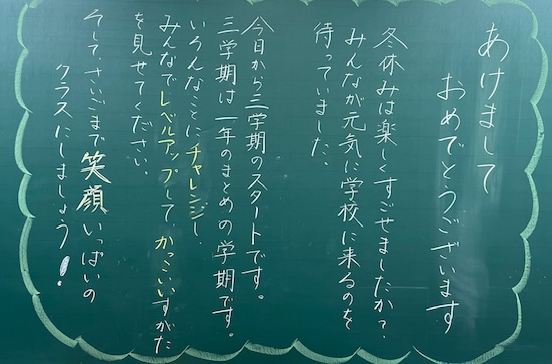 あけまして
おめでとうございます
冬休みは楽しくすごせましたか?
みんなが元気に学校に来るのを
待っていました。
今日から三学期のスタートです。
三学期は一年のまとめの学期です。
いろんなことにチャレンジし、
みんなでレベルアップして かっこいいすがた
を見せてください。
そして、さいごまで笑顔いっぱいの
クラスにしましょう!